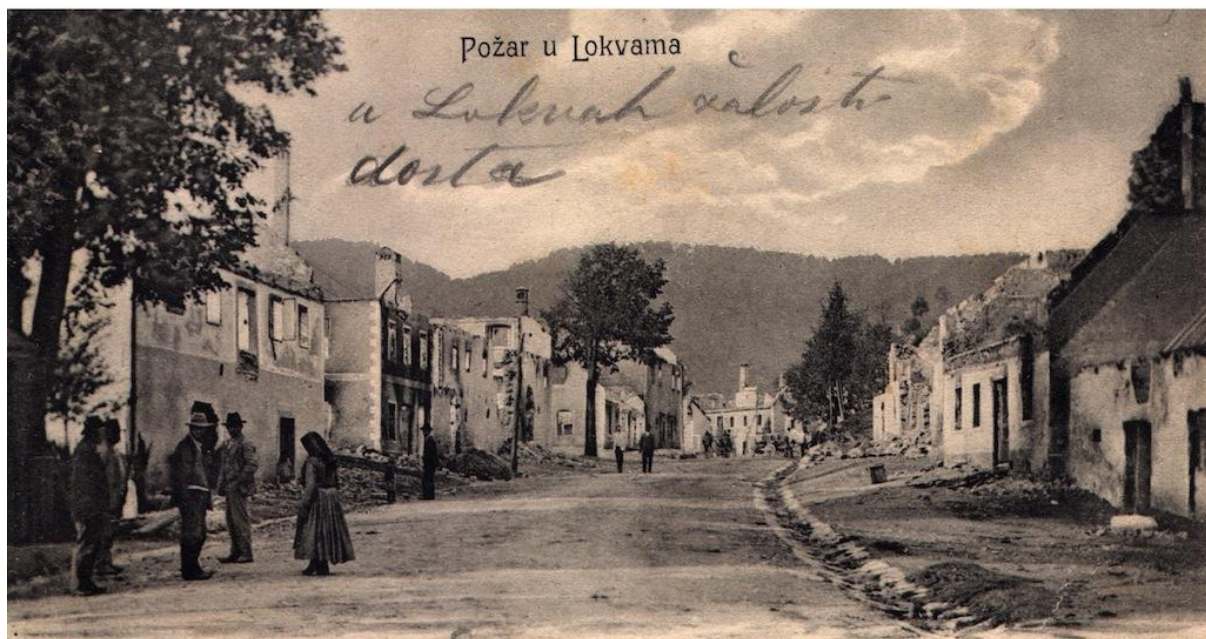 Požar u Lokvama
u Lokvah žalosti
dosta